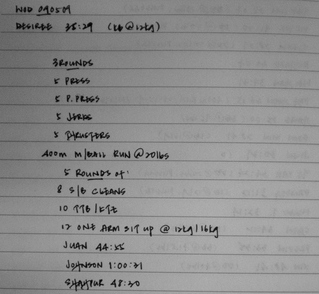 WOD 090509
DESIREE 38:29 (KB @ 12kg)
3 ROUNDS
5 PRESS
5 P.PRESS
5 JERKS
5 THRUSTERS
400m M/BALL RUN @ 20lbs
5 ROUNDS of
8 S/B CLEANS
10 TTB/KTE
12 ONE ARM SIT UP @ 12kg/16kg
JUAN 44:55
JOHNSON 1:00:31
48:30